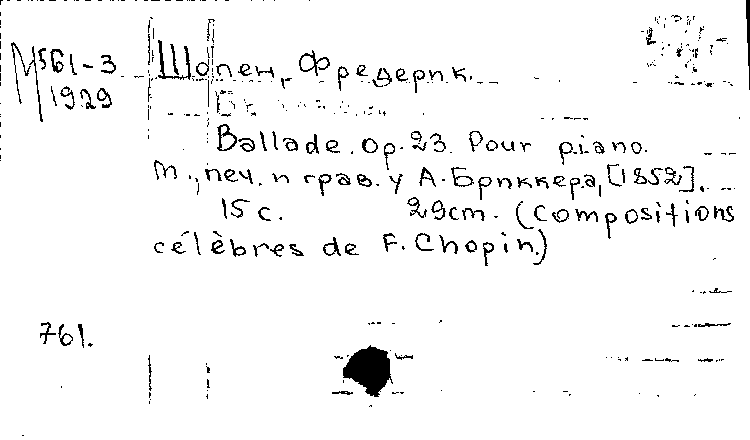 М561-3
1929
Шопен, Фредерик.
Ballade. Op. 23. Pour piano.
М., печ. и грав. у А. Бриккера, [1852].
15 с. 29cm. (Compositions
célèbres de F. Chopin.)
761.